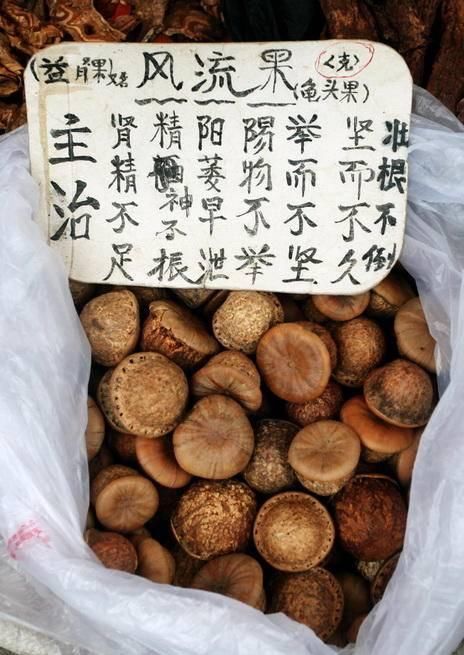 风流果
<克>
(龟头果)
主治
肾精不足
精神不振
阳萎早泄
陽物不举
举而不坚
坚而不久
壮根不倒